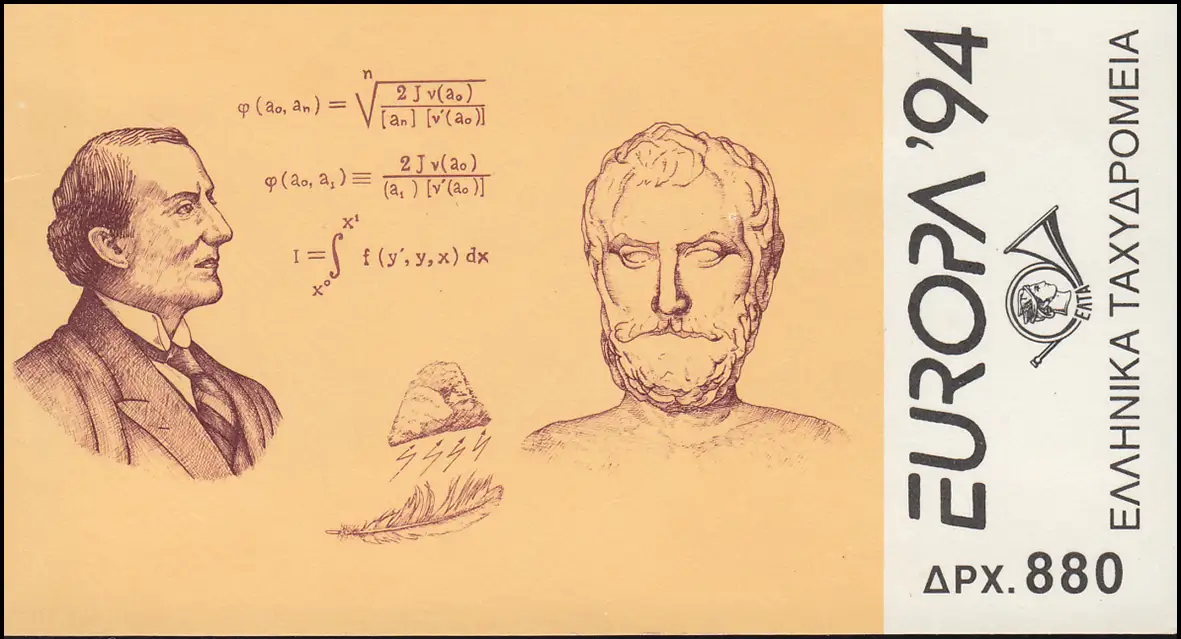 φ (a₀, aₙ) = ⁿ√(2 J ν(a₀) / [aₙ] [ν′(a₀)])
φ(a₀, a₁) ≡ 2 J ν(a₀) / (a₁) [ν′(a₀)]
I = ∫ₓ₀ˣ¹ f (y′, y, x) dx
EUROPA '94
ΕΛΤΑ
ΕΛΛΗΝΙΚΑ ΤΑΧΥΔΡΟΜΕΙΑ
ΔΡΧ. 880